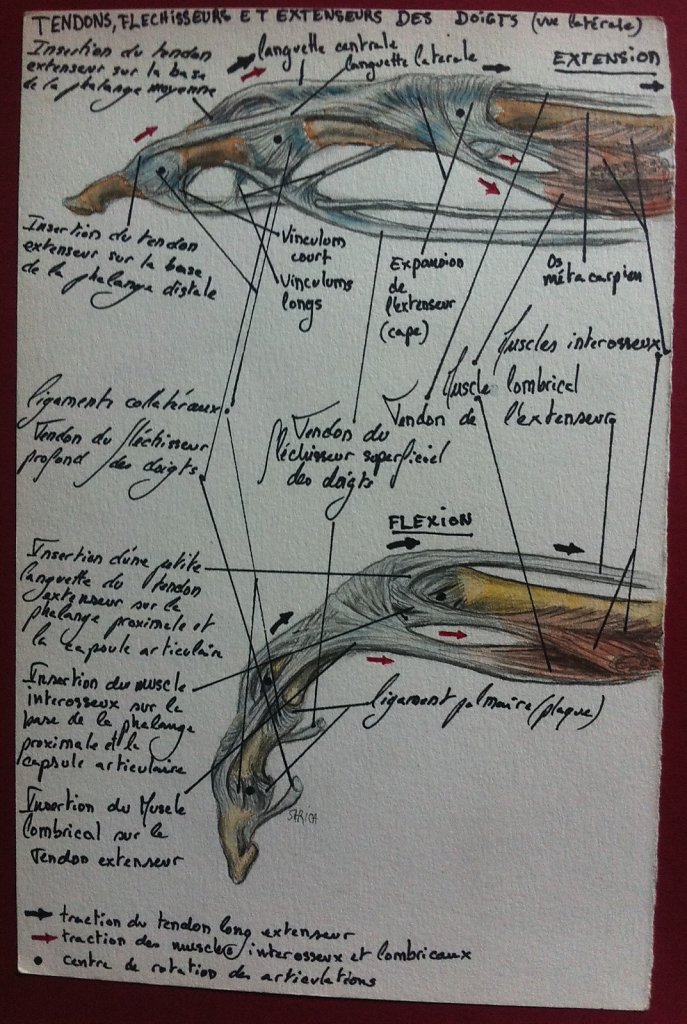 TENDONS, FLECHISSEURS ET EXTENSEURS DES DOIGTS (vue latérale)
Insertion du tendon
extenseur sur la base
de la phalange moyenne
languette centrale
languette laterale
EXTENSION
Insertion du tendon
extenseur sur la base
de la phalange distale
Vinculum
court
Vinculums
longs
Expansion
de
l'extenseur
(cape)
Os
métacarpien
Muscles interosseux
Muscle lombrical
Tendon de l'extenseur
ligaments collatéraux
Tendon du fléchisseur
profond des doigts
Tendon du
fléchisseur superficiel
des doigts
FLEXION
Insertion d'une petite
languette du tendon
extenseur sur la
phalange proximale et
la capsule articulaire
Insertion du muscle
interosseux sur la
base de la phalange
proximale et la
capsule articulaire
ligament palmaire (plaque)
Insertion du Muscle
lombrical sur le
Tendon extenseur
SARICA
traction du tendon long extenseur
traction des muscles interosseux et lombricaux
centre de rotation des articulations